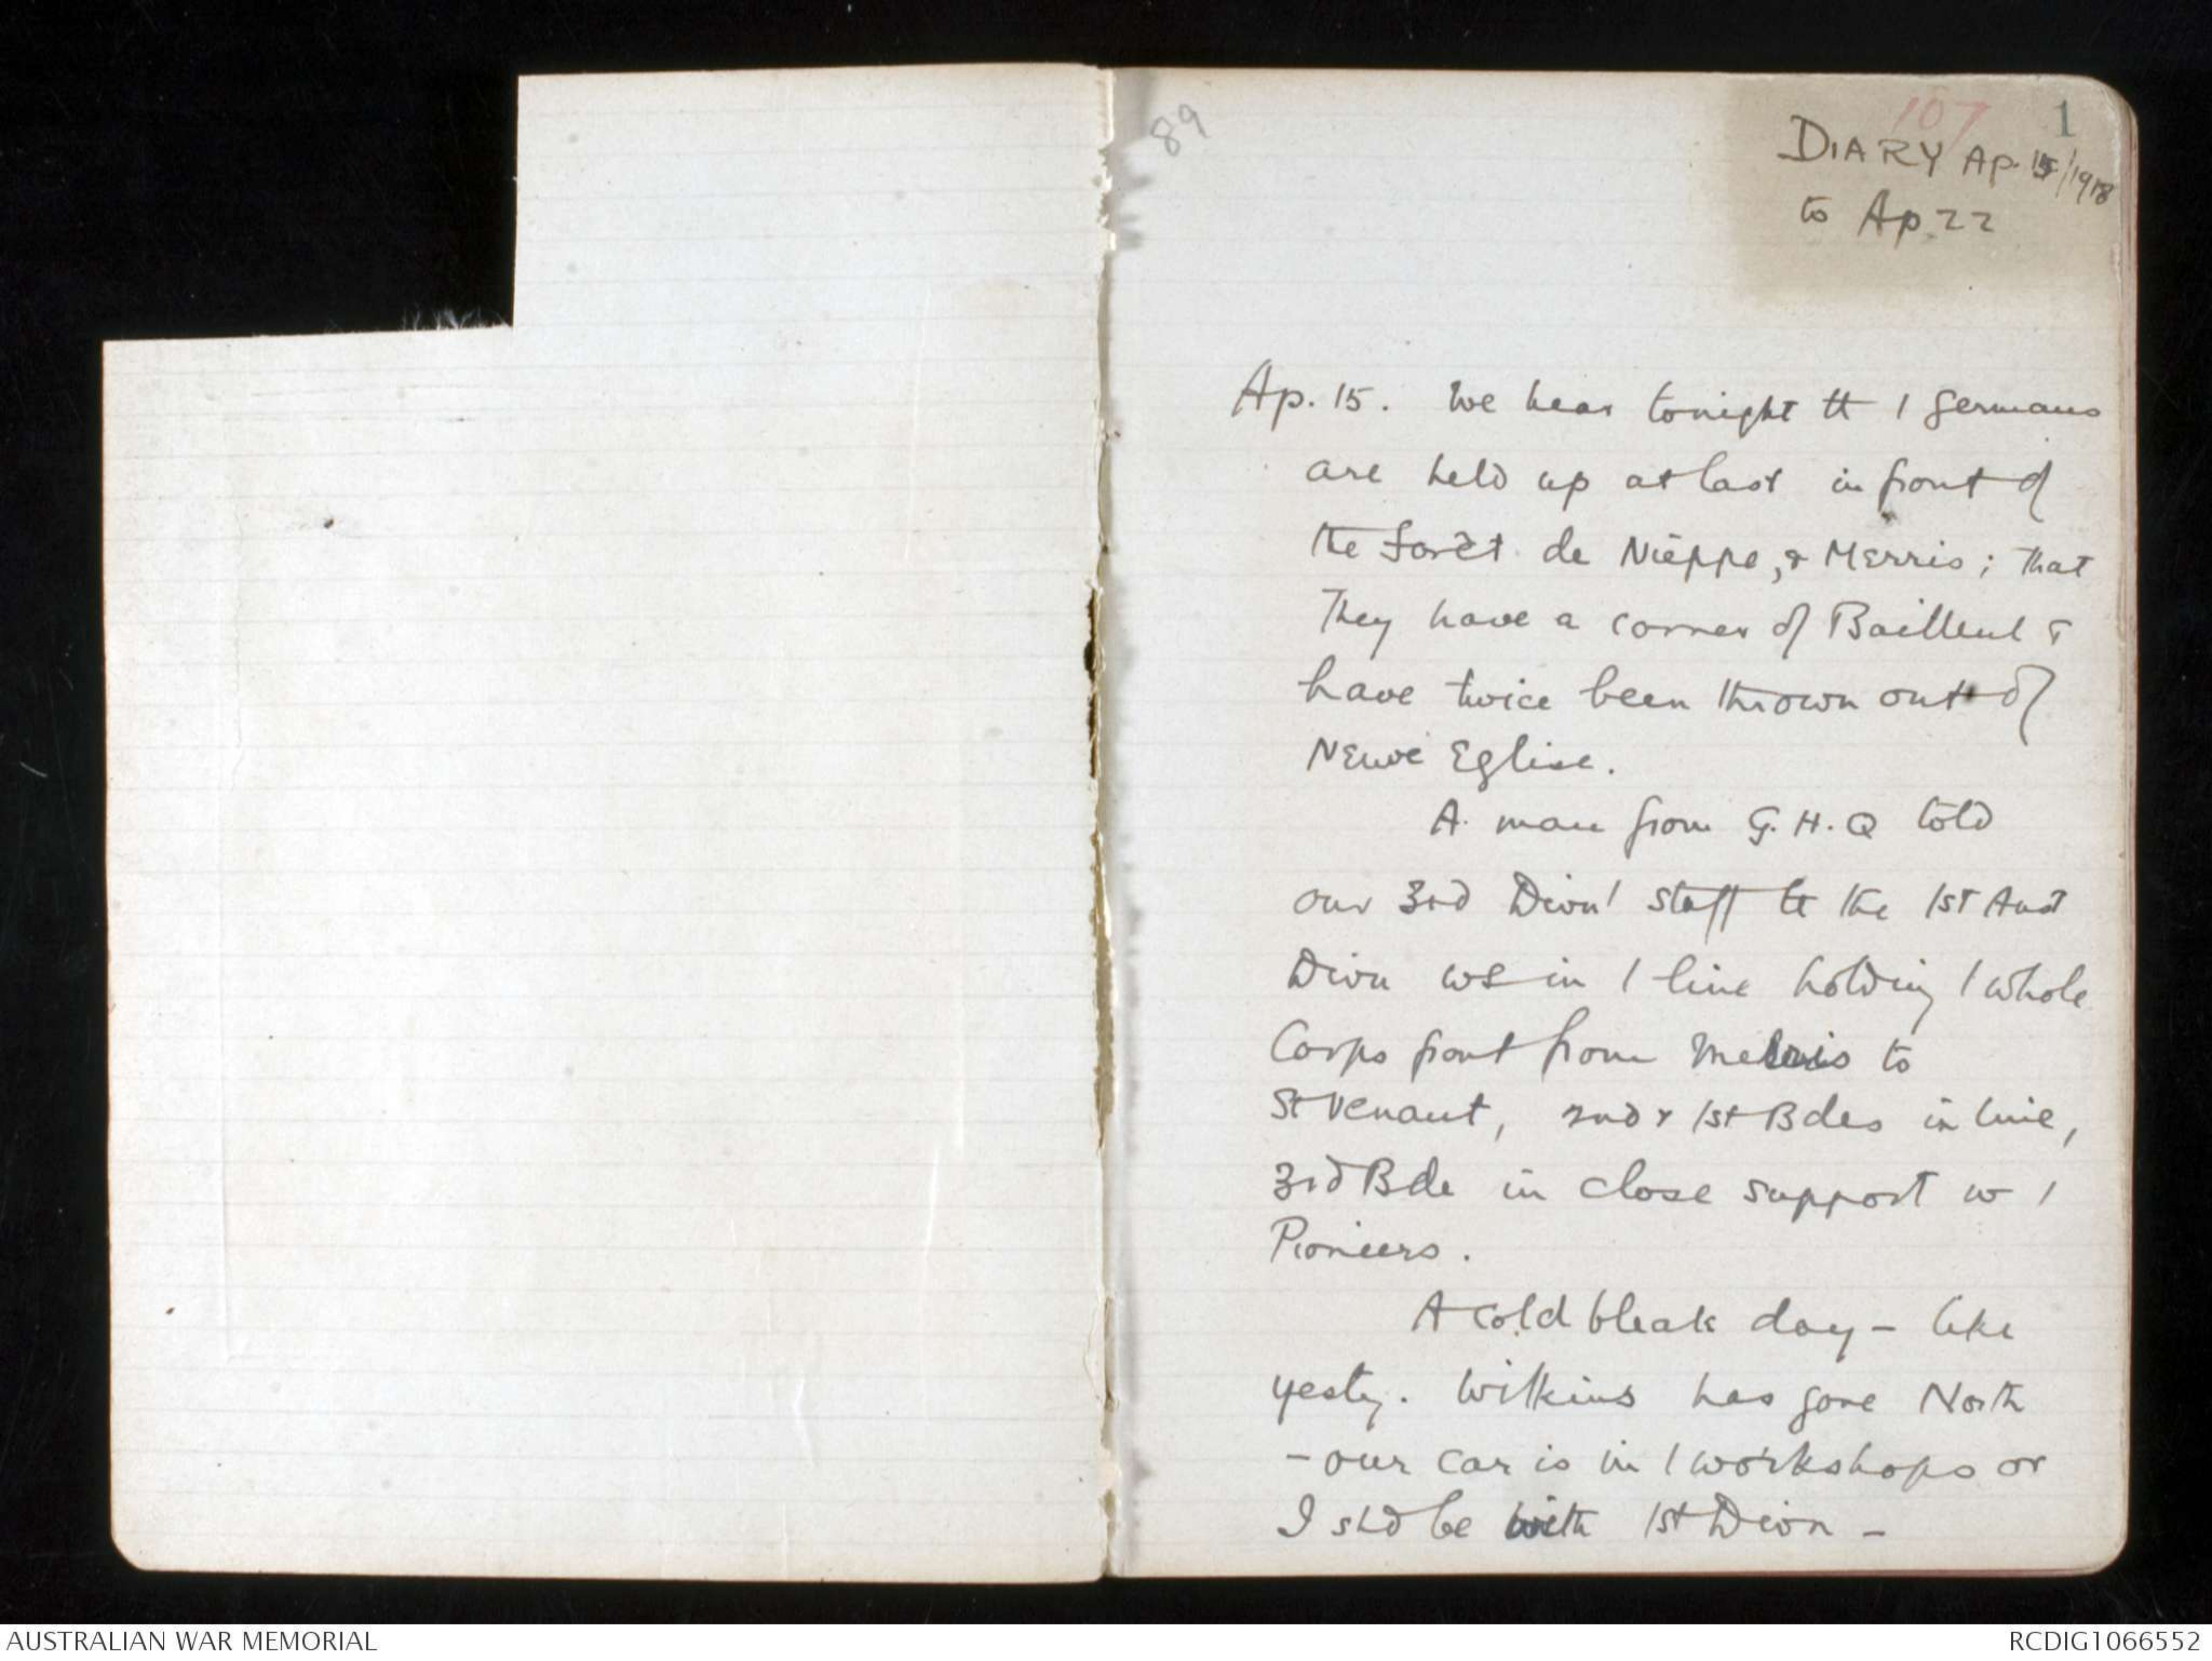 89
107 1
DIARY AP. 15/1918
to Ap 22
Ap. 15. We hear tonight tt / Germans
are held up at last in front of
the Forêt de Nieppe, & Merris; that
They have a corner of Bailleul &
have twice been thrown out of
Neuve Eglise.
A man from G.H.Q told
our 3rd Divnl staff tt the 1st Aust
Divn ws in / line holding / whole
Corps front from to
St Venant, 2nd & 1st Bdes in line,
3rd Bde in close support w /
Pioneers.
A cold bleak day - like
yesty. Wilkins has gone North
- our car is in / workshops or
I shd be with 1st Divn -
AUSTRALIAN WAR MEMORIAL
RCDIG1066552